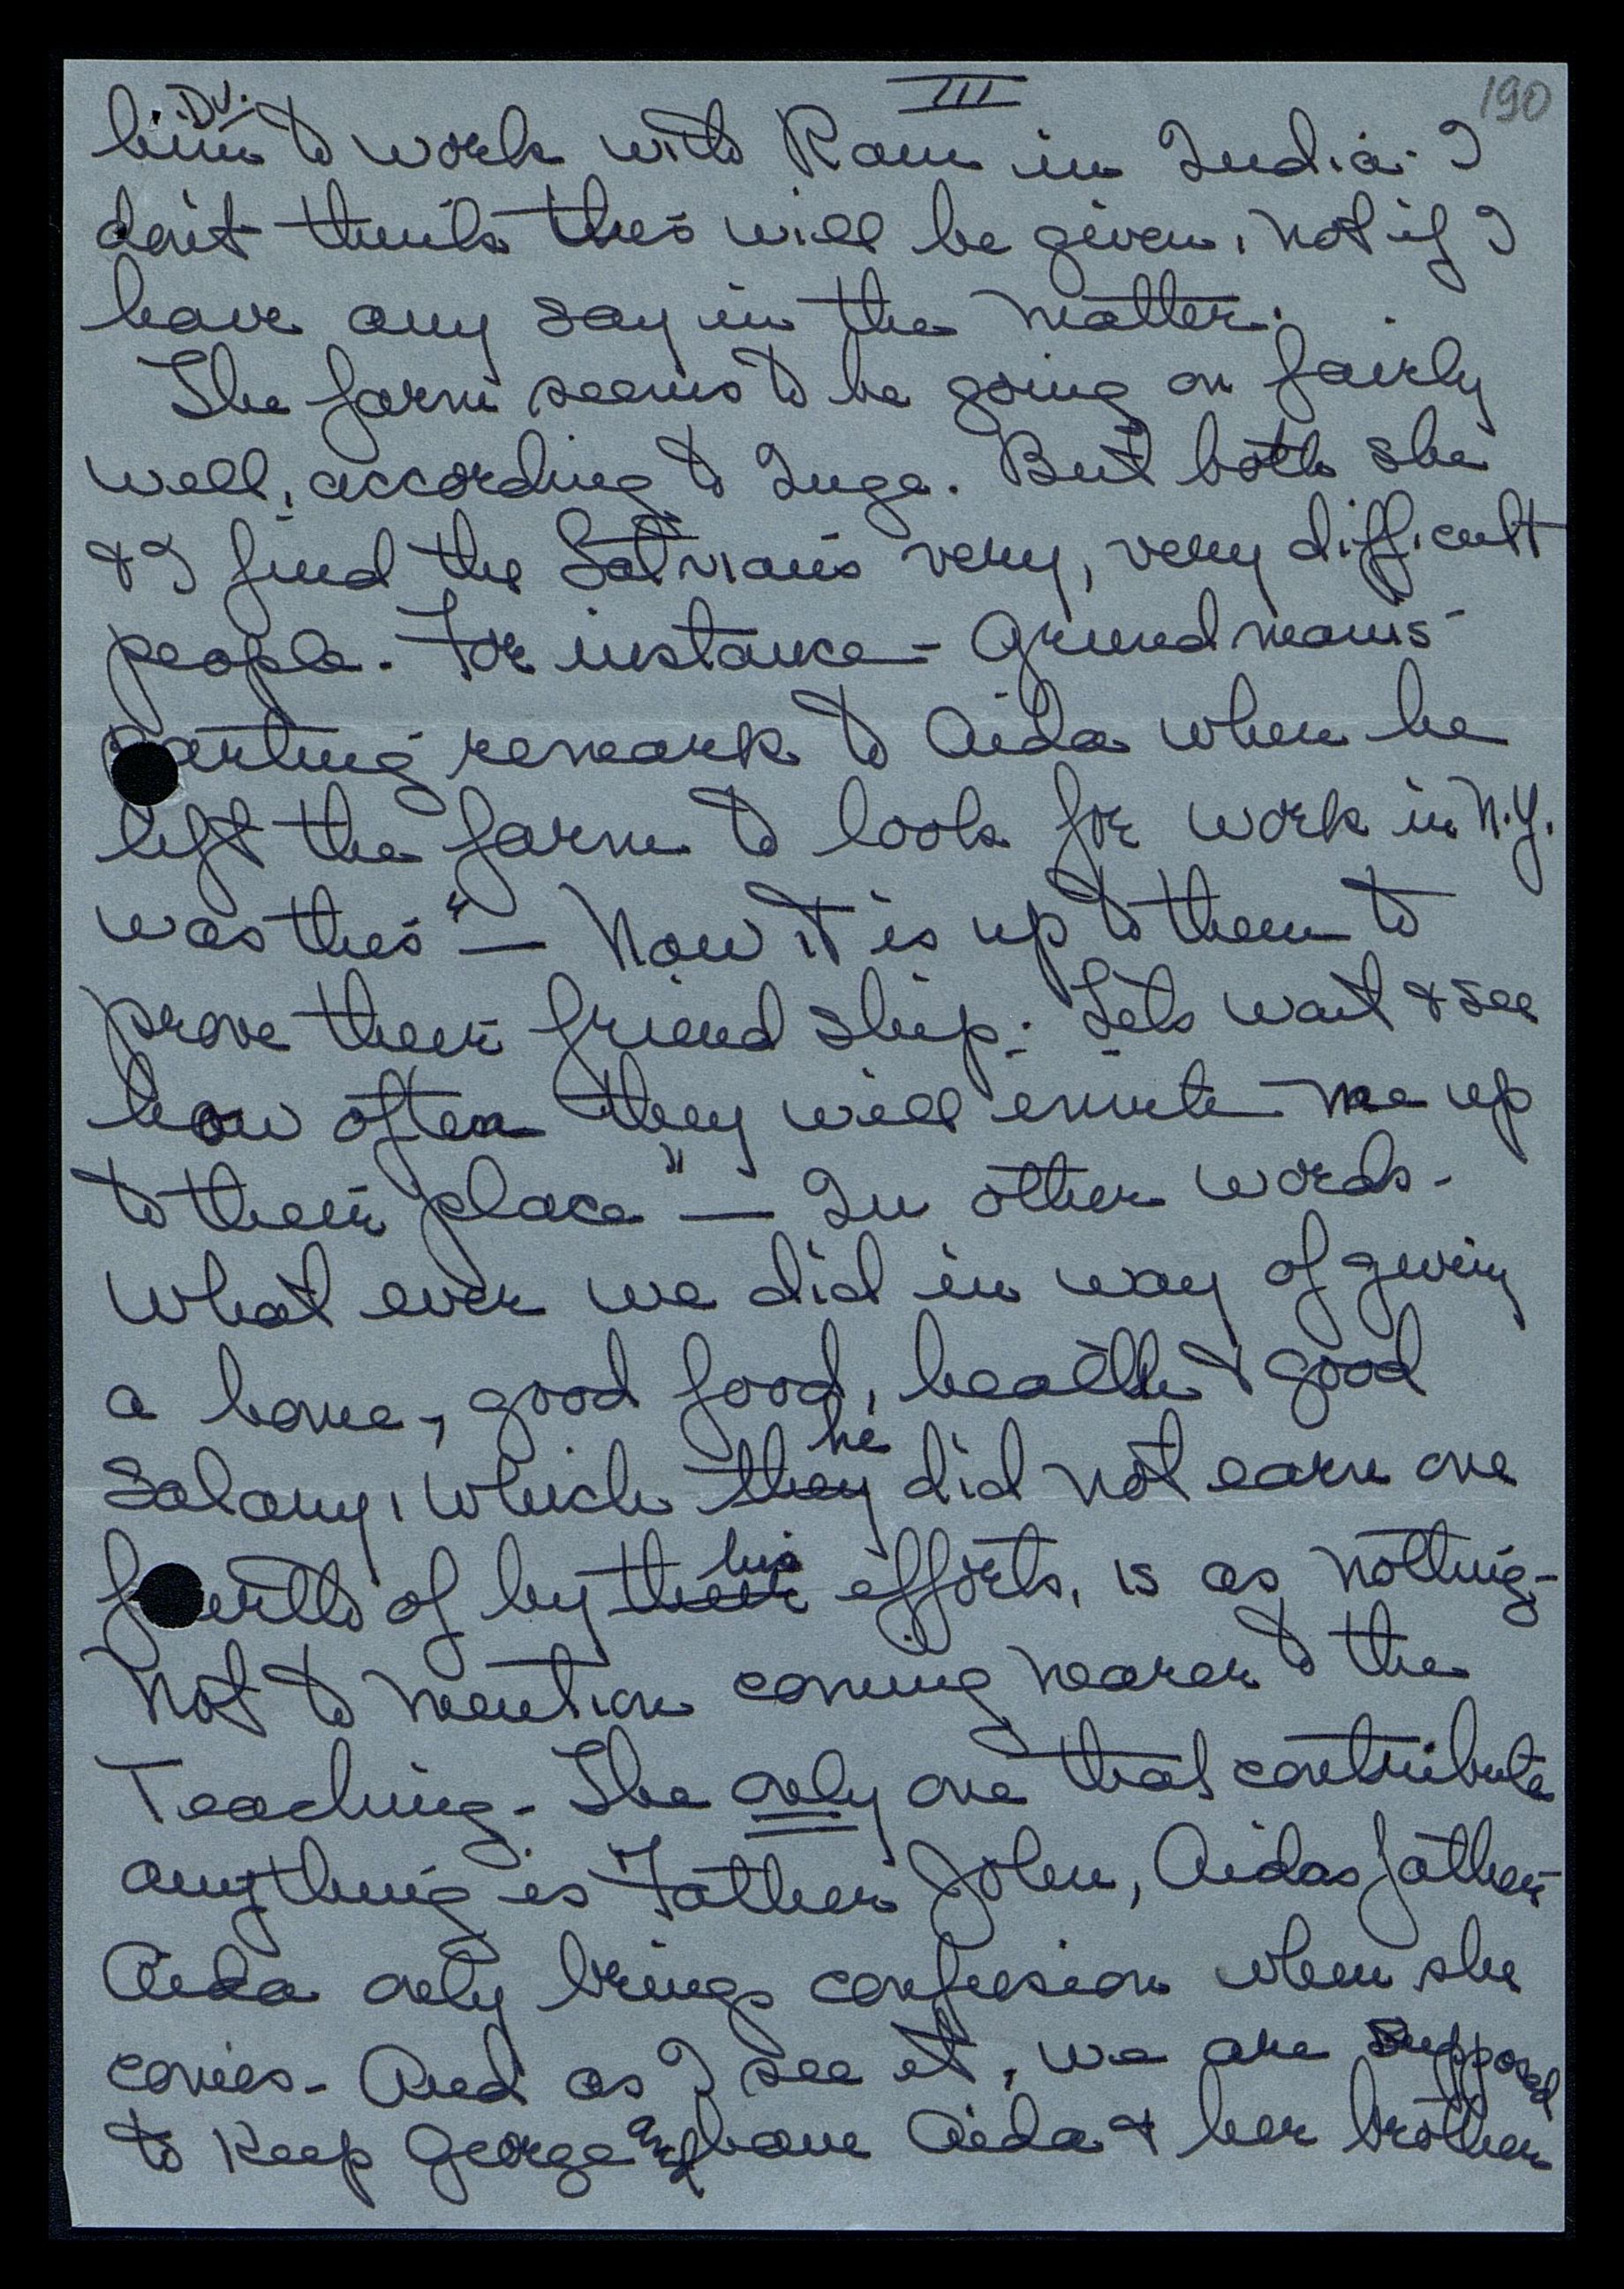 III
190
Dv.
him to work with Ram in India. I
don't think this will be given, not if I
have any say in the matter.
The farm seems to be going on fairly
well, according to Inge. But both she
& I find the Latvians very, very difficult
people. For instance - Grundmanis
parting remark to Aida when he
left the farm to look for work in N.Y.
was this "— Now it is up to them to
prove their friendship. Lets wait & see
how often they will invite me up
to their place" — In other words -
What ever we did in way of giving
a home, good food, health & good
Salary, which they he did not earn one
fourth of by their his efforts, is as nothing -
Not to mention coming nearer to the
Teaching. The only one that contribute
anything is Father John, Aidas father.
Aida only brings confusion when she
comes. And as I see it, we are supposed
to keep George and have Aida & her brother